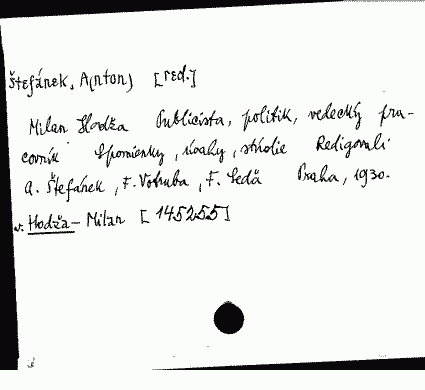 Štefánek, A(nton) [red.]
Milan Hodža Publicista, politik, vedecký pra-
covník Spomienky, úvahy, štúdie Redigovali
A. Štefánek, F. Votruba, F. Seďa Praha, 1930.
v. Hodža - Milan [145255]